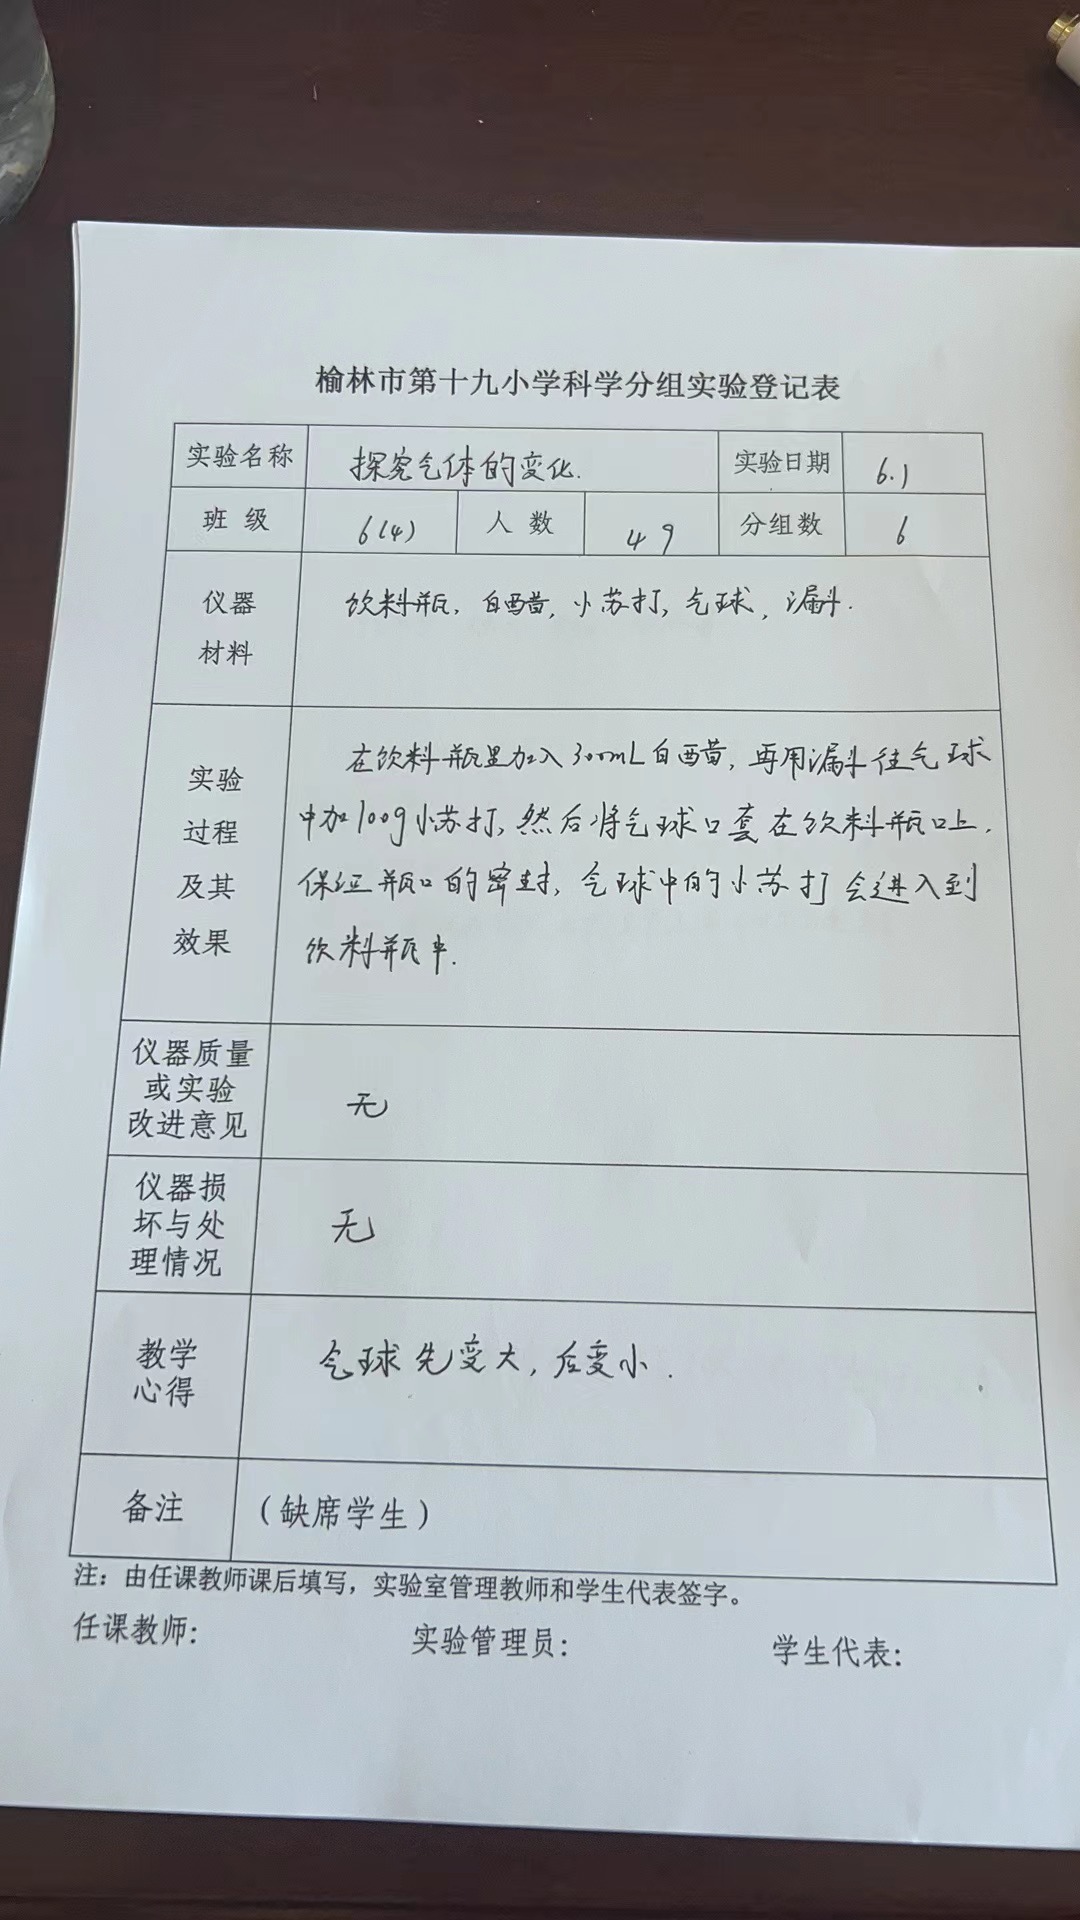 榆林市第十九小学科学分组实验登记表
实验名称 探究气体的变化. 实验日期 6.1
班 级 6(4) 人 数 49 分组数 6
仪器
材料
饮料瓶, 白醋, 小苏打, 气球, 漏斗.
实验
过程
及其
效果
在饮料瓶里加入300mL白醋, 再用漏斗往气球
中加100g小苏打, 然后将气球口套在饮料瓶口上,
保证瓶口的密封, 气球中的小苏打会进入到
饮料瓶中.
仪器质量
或实验
改进意见
无
仪器损
坏与处
理情况
无
教学
心得
气球先变大, 后变小.
备注 (缺席学生)
注：由任课教师课后填写，实验室管理教师和学生代表签字。
任课教师: 实验管理员: 学生代表: